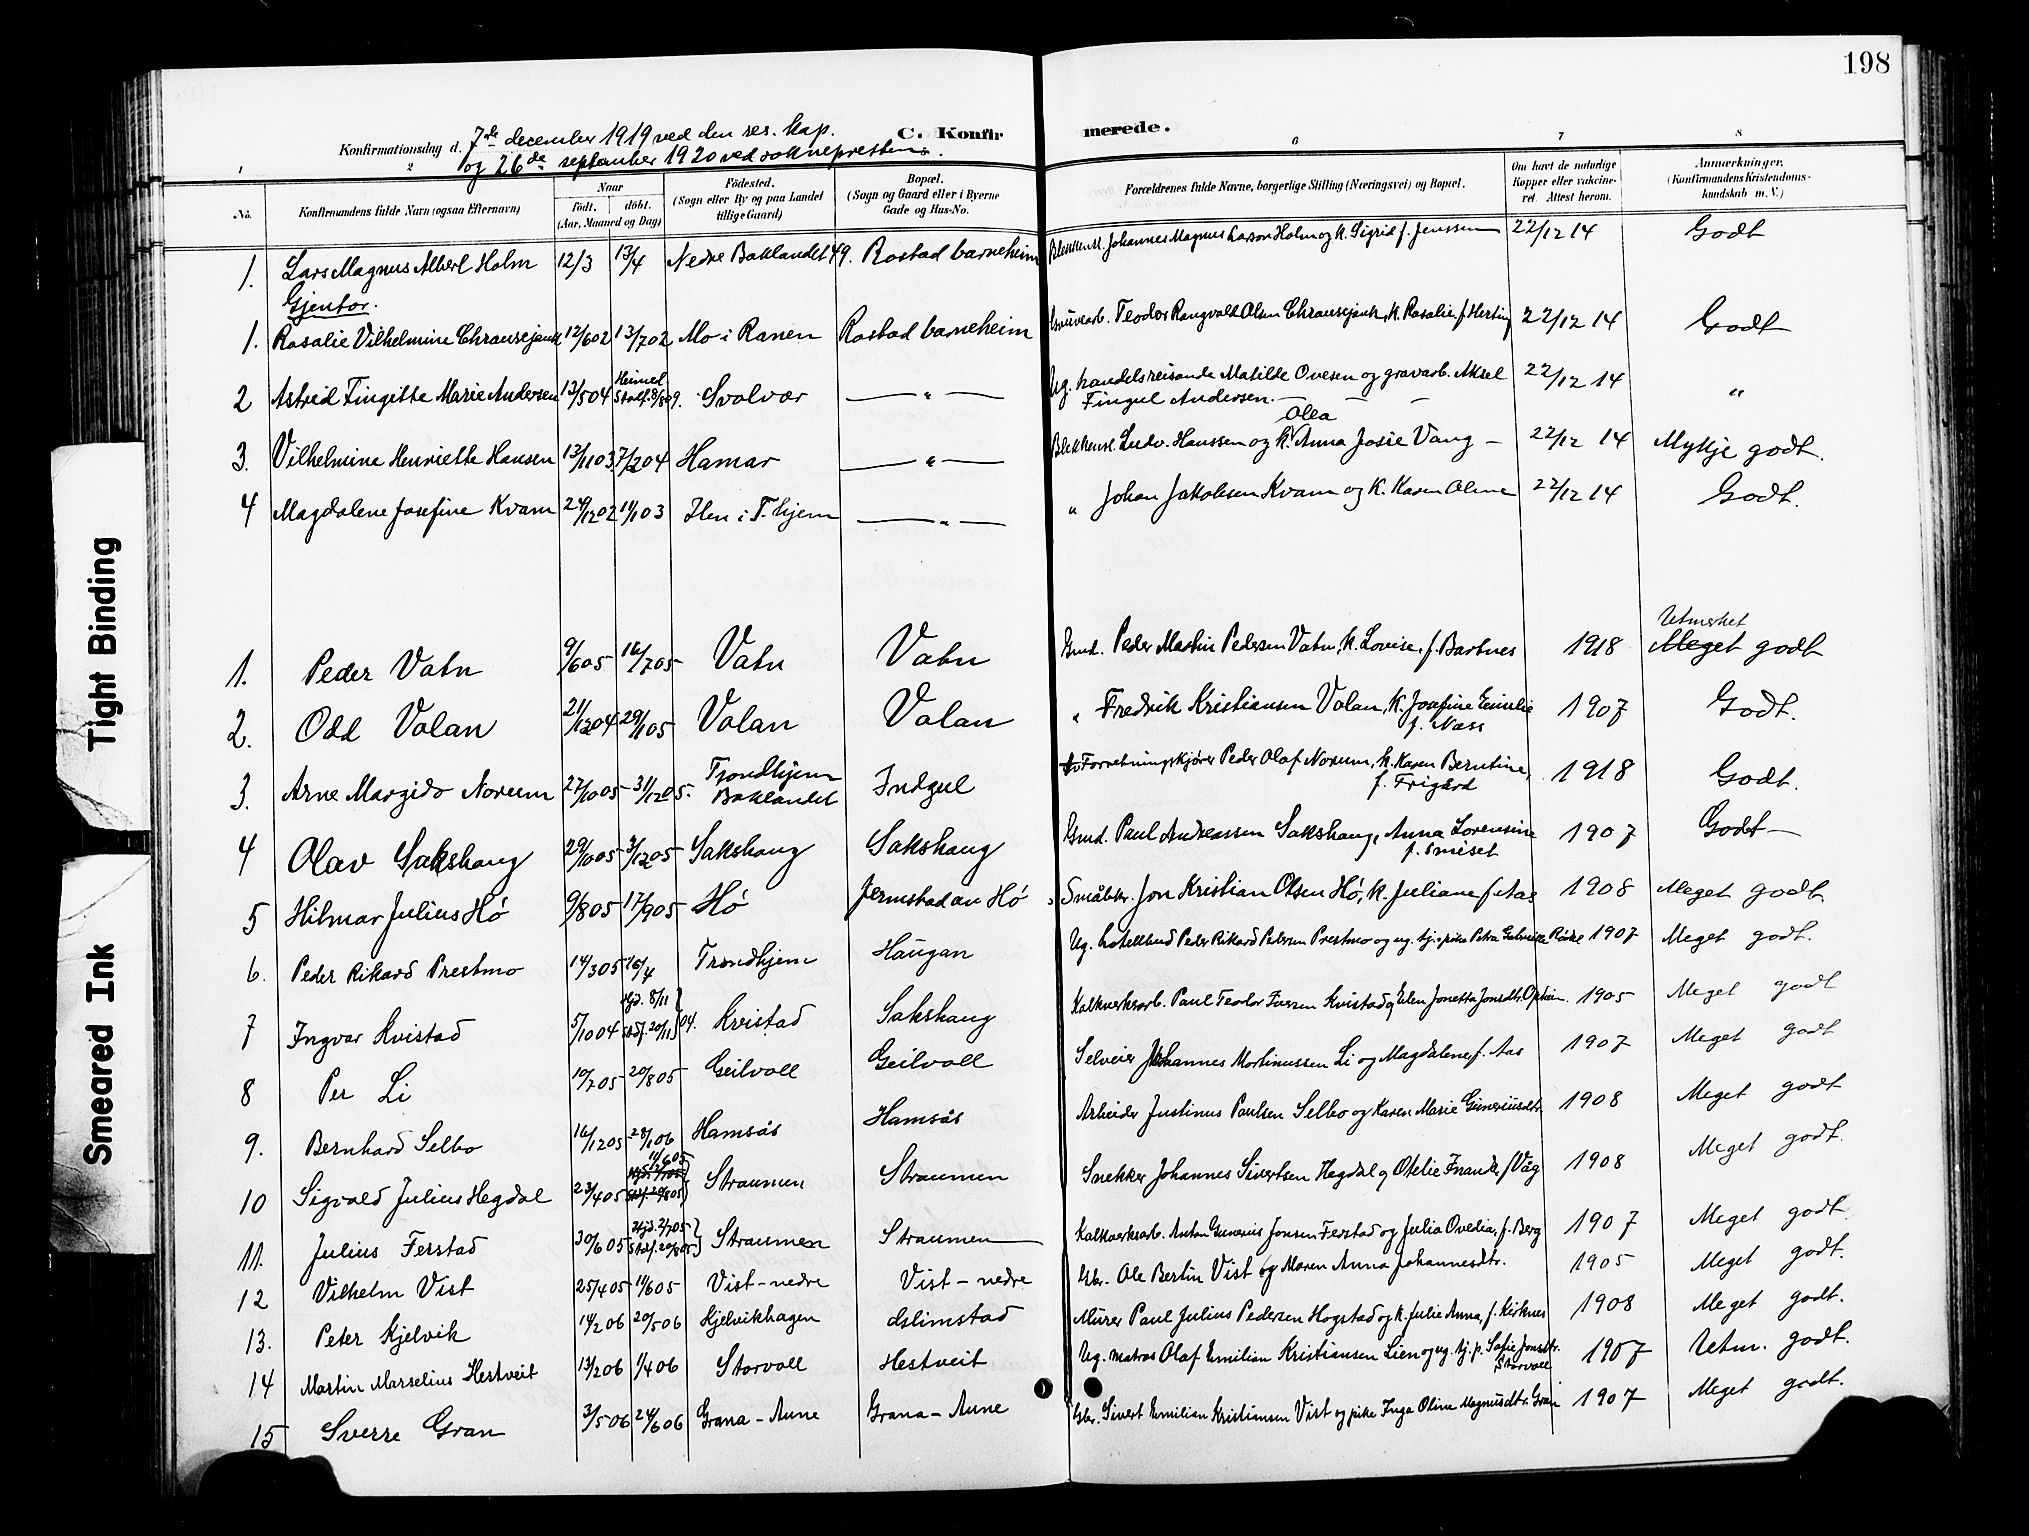 198
Tight Binding
Smeared Ink
C. Konfirmerede.
Konfirmationsdag d. 7de december 1919 ved den res. kap.
og 26de september 1920 ved soknepresten.
1 2 6 7 8
No. Konfirmandens fulde Navn (ogsaa Efternavn) Naar født. døbt. (Aar, Maaned og Dag) Fødested. (Sogn eller By og paa Landet tillige Gaard) Bopæl. (Sogn og Gaard eller i Byerne Gade og Hus-No. Forældrenes fulde Navne, borgerlige Stilling (Næringsvei) og Bopæl. Om havt de naturlige Kopper eller vakcineret. Attest herom. Anmærkninger. (Konfirmandens Kristendomskundskab m. V.)
1. Lars Magnus Albert Holm 12/3 13/4 Nedre Baklandet 49. Rostad barneheim Blekkensl. Johannes Magnus Larson Holm og k. Sigrid f. Jenssen 22/12 14 Godt
Gjentor.
1. Rosalie Vilhelmine 12/602 13/702 Mo i Ranen Rostad barneheim Teodor Rangvald Olsen k. Rosalie f. Herting 22/12 14 Godt
2 Astrid Fingitte Marie Andersen 13/504 Heimed. Stadf. 8/809. Svolvær — " — Ug. handelsreisande Matilde Ovesen og gravarb. Aksel Fingul Andersen. — 22/12 14 "
3. Vilhelmine Henriette Hansen 13/1103 7/204 Hamar — " — Blekkensl. Ludv. Hanssen og k. Olea Anna Josie Vang — 22/12 14 Mykje godt.
4 Magdalene Josefine Kvam 24/1202 11/103 Hen i T.hjem — " — " Johan Jakobsen Kvam og k. Karen Oline 22/12 14 Godt.
1. Peder Vatn 9/605 16/705 Vatn Vatn Gmd. Peder Martin Pedersen Vatn, k. Lovise, f. Bartnes 1918 Utmerket Meget godt
2. Odd Volan 21/1204 29/105 Volan Volan " Fredrik Kristiansen Volan, k. Josefine Emilie f. Næss 1907 Godt.
3. Arne Margido Norum 27/1005 31/1205. Trondhjem Baklandet Indgul Forretningskjører Peder Olaf Norum, k. Karen Berntine, f. Frigård 1918 Godt.
4 Olav Sakshaug 29/1005 3/1205 Sakshaug Sakshaug Gmd. Paul Andreassen Sakshaug, Anna Lorensine f. Småset 1907 Godt —
5 Hilmar Julius Hø 9/805 17/905 Hø Jermstad av Hø Småbkr. Jon Kristian Olsen Hø, k. Juliane f. Aas 1908 Meget godt
6. Peder Rikard Prestmo 14/305 16/4 Trondhjem Haugan Ug. hotellbud Peder Rikard Pedersen Prestmo og ug. tj.pike Petra 1907 Meget godt.
7 Ingvar Kvistad 5/1004 Hjd. 8/11 Stdf. 20/11 } 04. Kvistad Sakshaug Kalkverksarb. Paul Teodor Iversen Kvistad og Elen Jonetta Jonsdtr. 1905 Meget godt
8 Per Li 10/705 20/805 Geilvoll Geilvoll Selveier Johannes Martinussen Li og Magdalene, f. Aas 1907 Meget godt
9. Bernhard Selbo 16/1205 28/106 Hamsås Hamsås Arbeider Justinus Paulsen Selbo og Karen Marie Guneriusdtr. 1908 Meget godt
10 Sigvald Julius Hegdal 23/405 11/605 Straumen Straumen Snekker Johannes Sivertsen Hegdal og Otelie f. Våg 1908 Meget godt.
11. Julius Ferstad 30/605 Hjd. 2/705 Stdf. 20/805 } Straumen Straumen Kalkverksarb. Anton Gunerius Jonsen Ferstad og Julia Ovedia, f. Berg 1907 Meget godt.
12 Vilhelm Vist 25/405 11/605 Vist-nedre Vist-nedre Gbr. Ole Bertin Vist og Maren Anna Johannesdtr. 1905 Meget godt.
13. Peter Kjelvik 14/206 20/506 Kjelvikhagen Murer Paul Julius Pedersen Hogstad og k. Julie Anna, f. Kirknes 1908 Meget godt.
14 Martin Marselius Hestveit 13/206 1/406 Storvoll Hestveit Ug. matros Olaf Emilian Kristiansen Lien og ug. tj.p. Sofie Jonsdtr. Storvoll 1907 Utm. godt.
15 Sverre Gran 3/506 24/606 Grana-Aune Grana-Aune Gbr. Sivert Emilian Kristiansen Vist og pike Inga Oline Magnusdtr. Gran 1907 Meget godt.